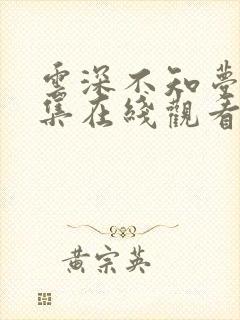 雲深不知夢
集在綫觀看
黄宗英